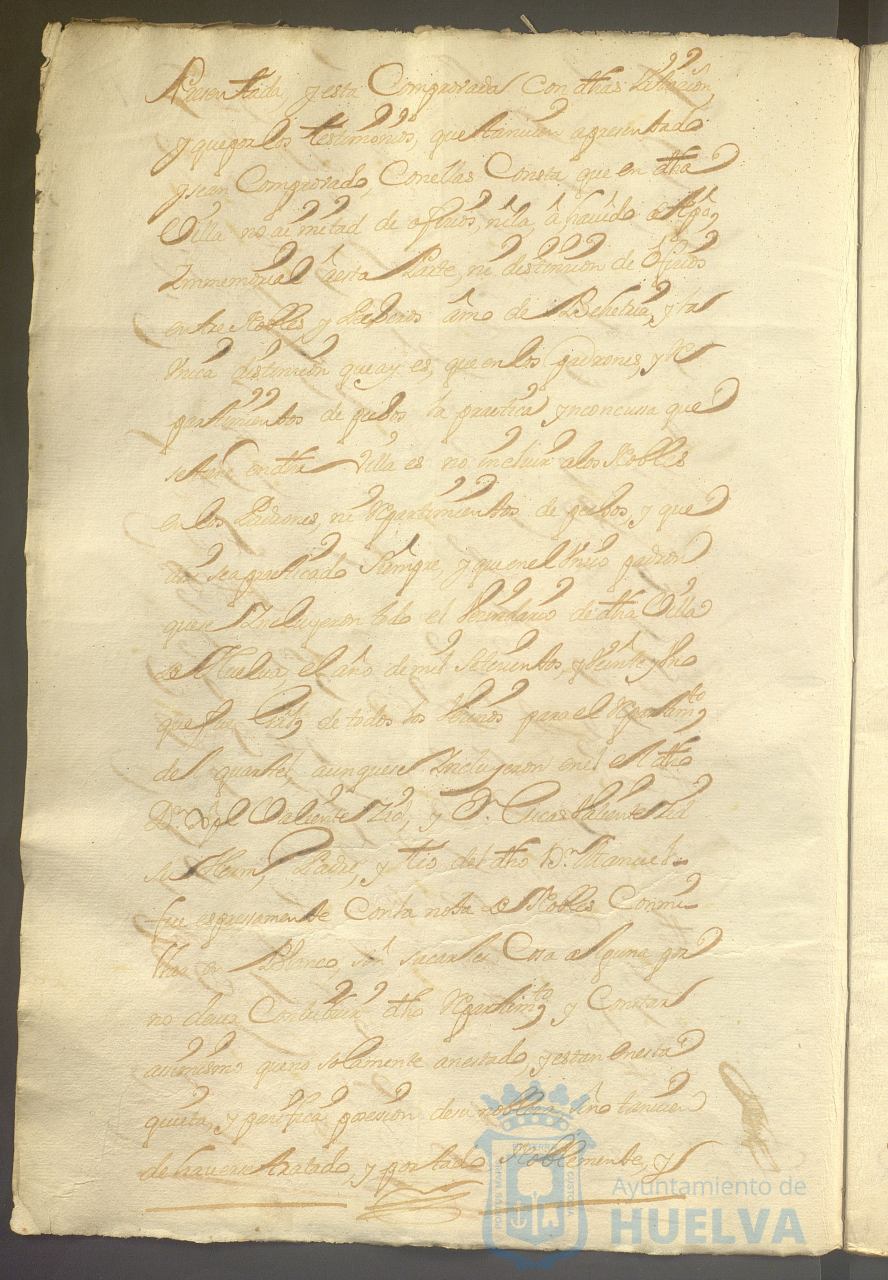 Presentada y esta Comprovada con dhas
y que por los testimonios, que tanvien apresentado
y sean Comprovado, Conellas Consta que en dha
Villa no ai mitad de oficios, ni la, à havido
Immemorial àesta Parte, ni distincion de Oficios
entre Nobles y Pecheros de Behetria, y la
Unica distincion que ay es, que en los padrones, y
partimientos de pechos la practica ynconcusa que
en dha Villa es no incluir alos Nobles
en los Padrones, ni Repartimientos de pechos, y que
asi sea practicado Siempre, y que en el Unico padron
que se Incluyeron todo el Vecindario de dha Villa
de Huelva, el año de mil Setecientos, y Veinte y Uno
que fue de todos los Vecinos para el Repartimto
del quartel, aunque se Incluyeron en el dho
Dn Valiente y Dn Lucas Valiente
su Herm, Padre, y tio del dho Dn Manuel
fue espresamente Con la nota de Nobles Con
en Blanco, sin sacarles Cosa alguna por
no dever Contribuir dho Repartimto y Constar
asimismo que no solamente anestado, y estan enesta
quieta, y pacifica posesion desu nobleza, sino tanvien
de haverse tratado, y portado Noblemente, y
Ayuntamiento de
HUELVA